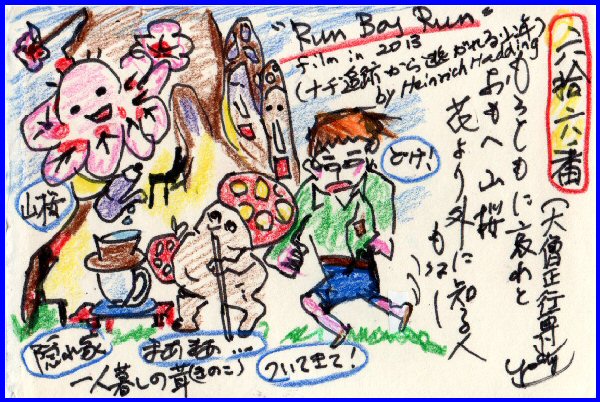 "Run Boy Run"
film in 2013
(ナチ追跡から逃がれる少年)
by Heinrich Hadding
六拾六番
(大僧正行尊)
もろともに哀れと
おもへ山桜
花より外に知る人
もなし
どけ!
山桜
隠れ家
まあまあ…
ついてきて!
一人暮しの茸(きのこ)